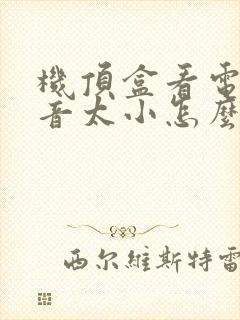 機頂盒看電
音太小怎麼
西尔維斯特雷